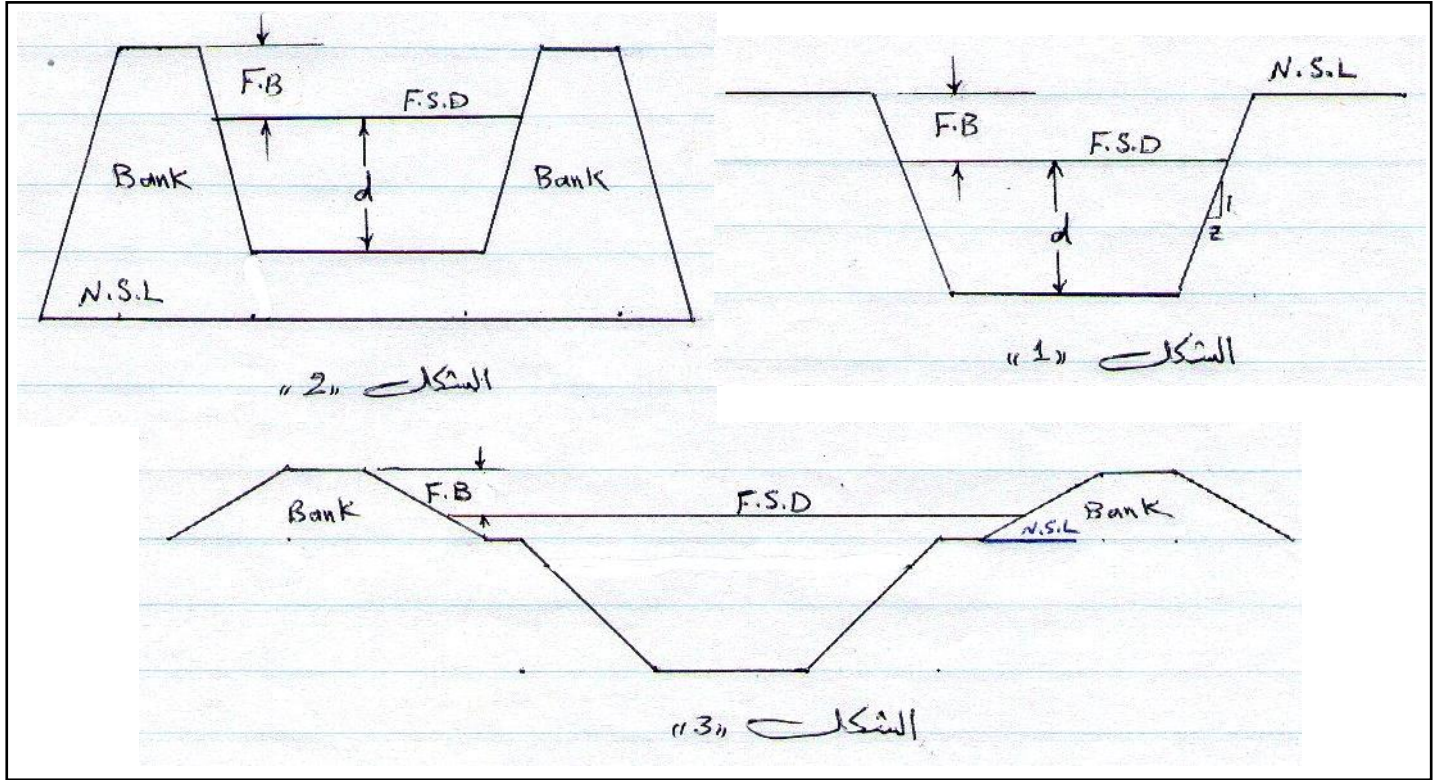 F.B
F.S.D
Bank
d
Bank
N.S.L
الشكل "2"
N.S.L
F.B
F.S.D
1
z
d
الشكل "1"
F.B
F.S.D
Bank
N.S.L
Bank
الشكل "3"